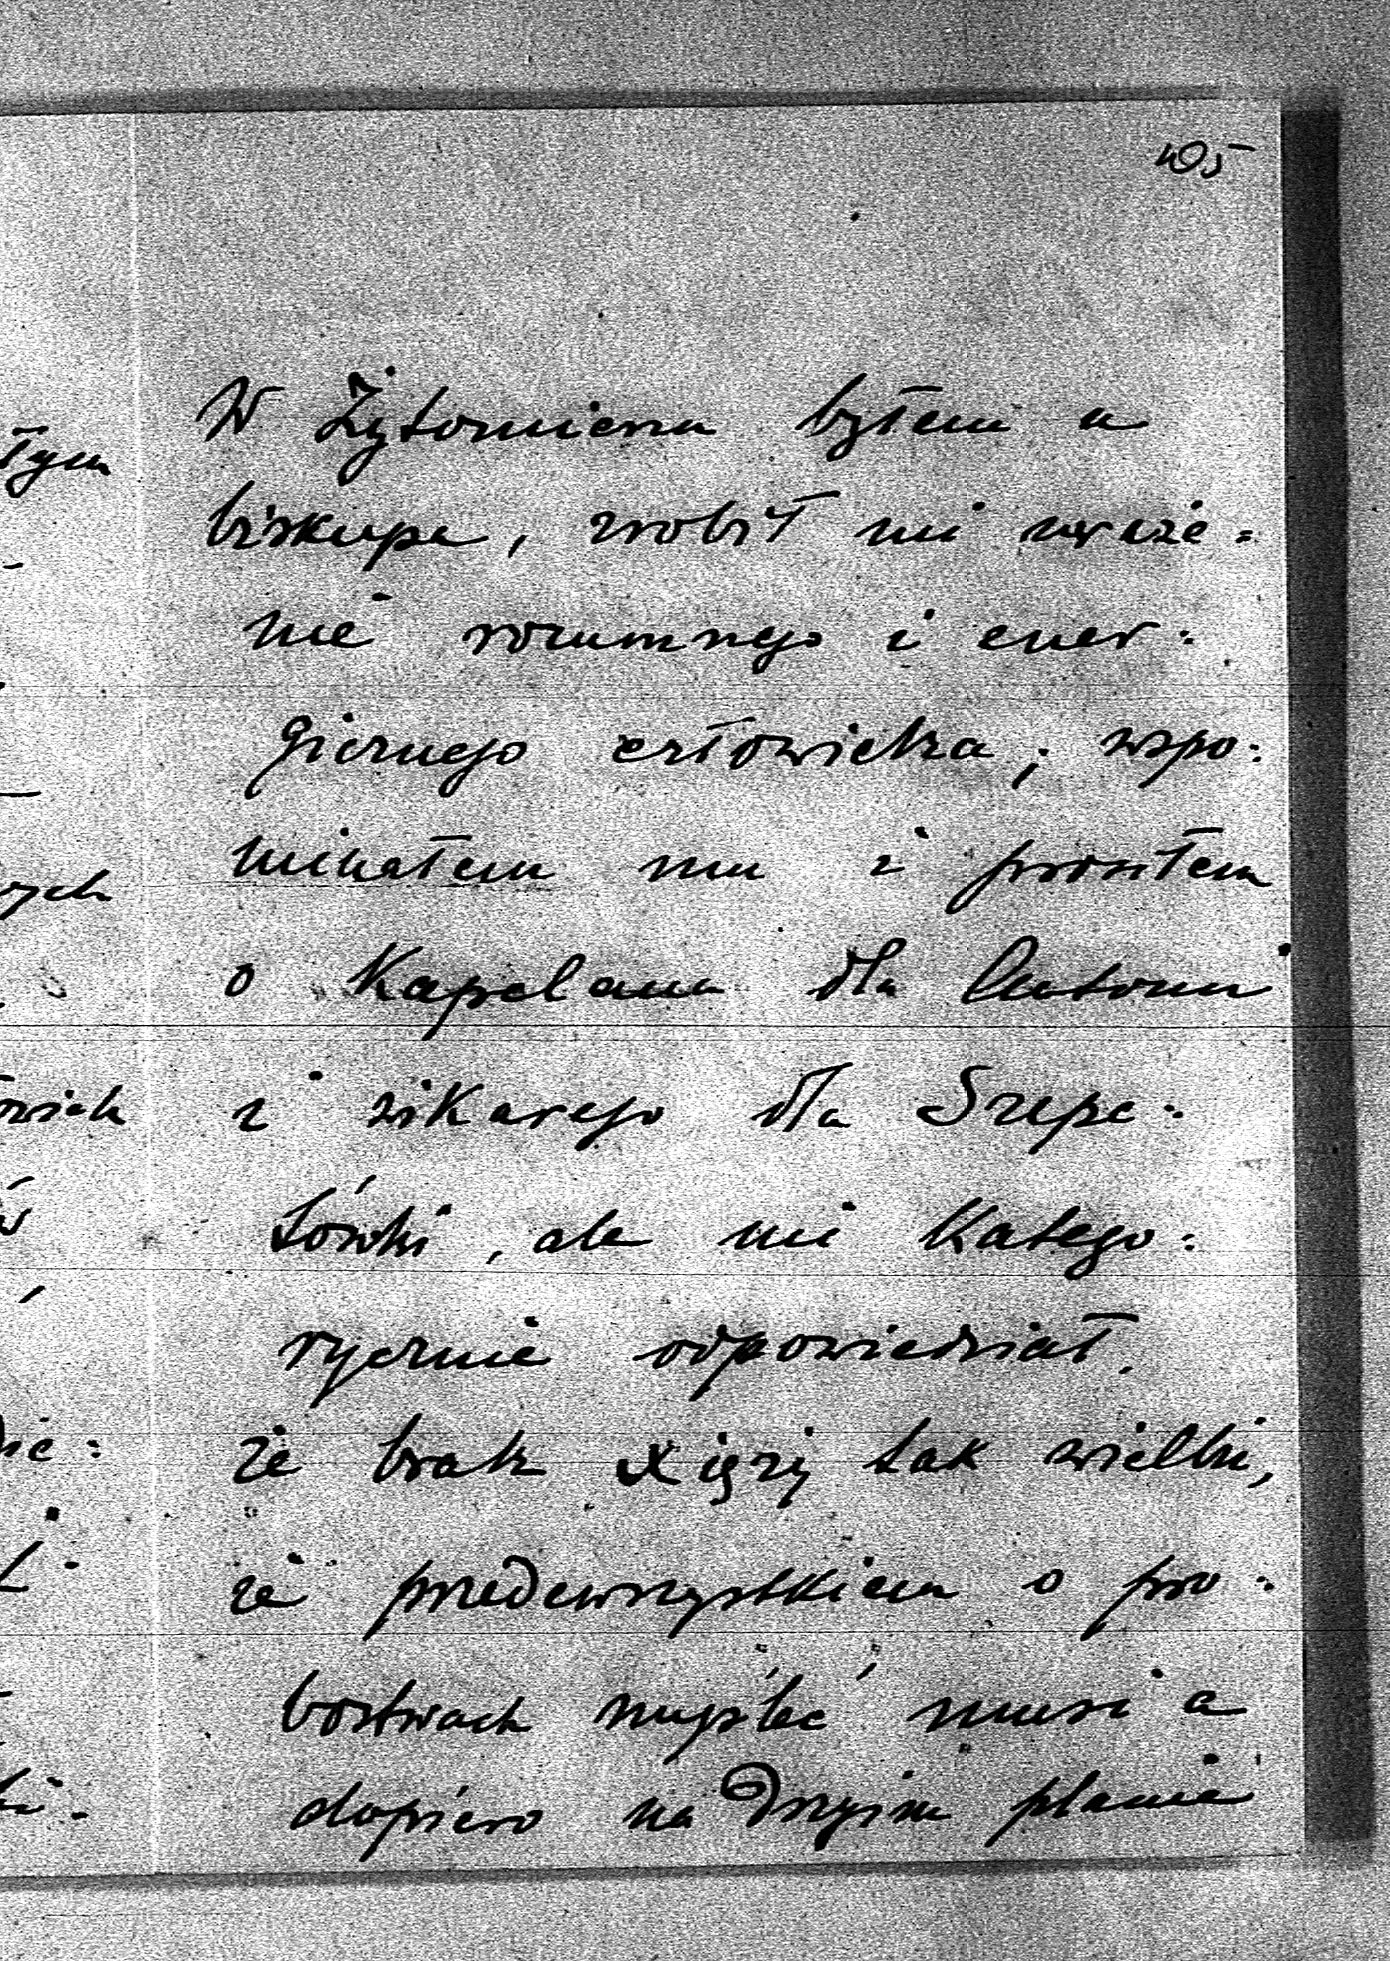 405
W Żytomierzu byłem u
biskupa, zrobił mi wraże=
nie rozumnego i ener=
gicznego człowieka; wspo=
minałem mu i prosiłem
o Kapelana dla Antonin
i wikarego dla Szepe=
tówki, ale mi Katego=
rycznie odpowiedział,
że brak xięży tak wielki,
że przedewszystkiem o pro=
bostwach myśleć musi a
dopiero na drugim planie